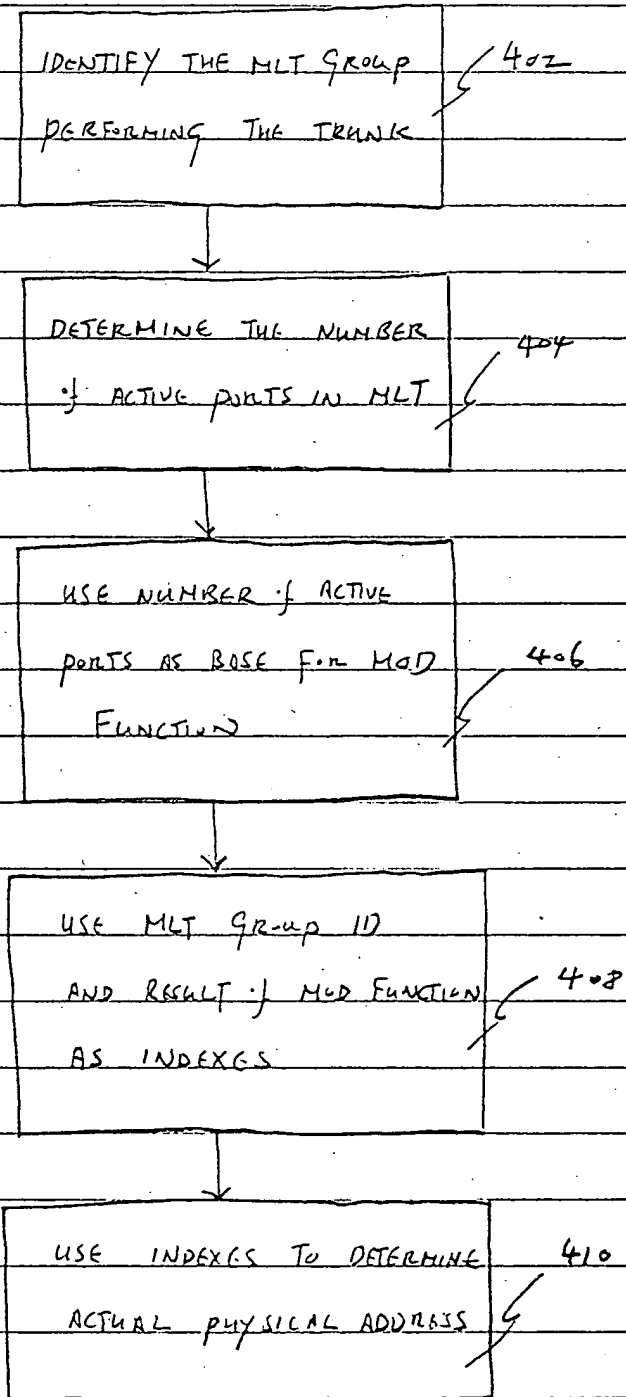 IDENTIFY THE MLT GROUP
402
PERFORMING THE TRUNK
DETERMINE THE NUMBER
404
of ACTIVE PORTS IN MLT
USE NUMBER of ACTIVE
PORTS AS BASE For MOD
406
FUNCTION
USE MLT GRoup ID
AND RESULT of MOD FUNCTION
408
AS INDEXES
USE INDEXES To DETERMINE
410
ACTUAL PHYSICAL ADDRESS